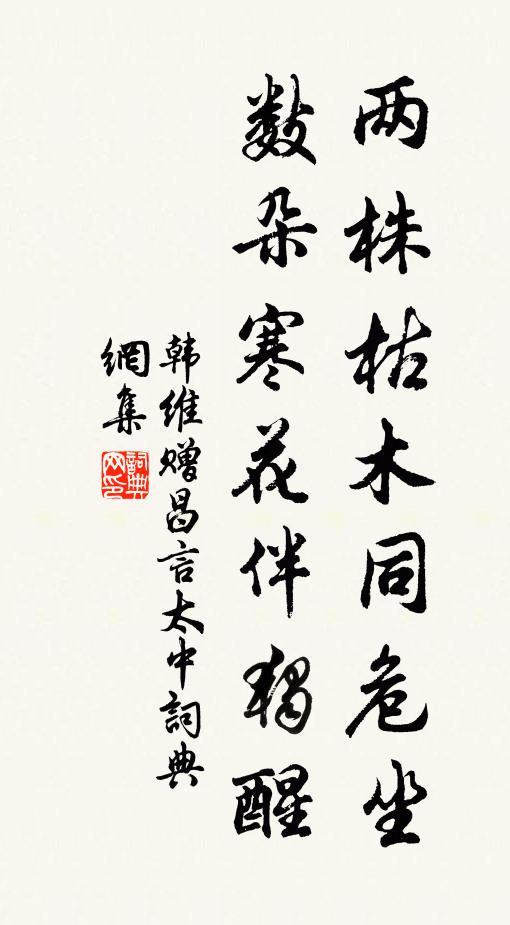 两株枯木同危坐
数朵寒花伴独醒
韩维赠昌言太中詞典
網集
詞典
网印